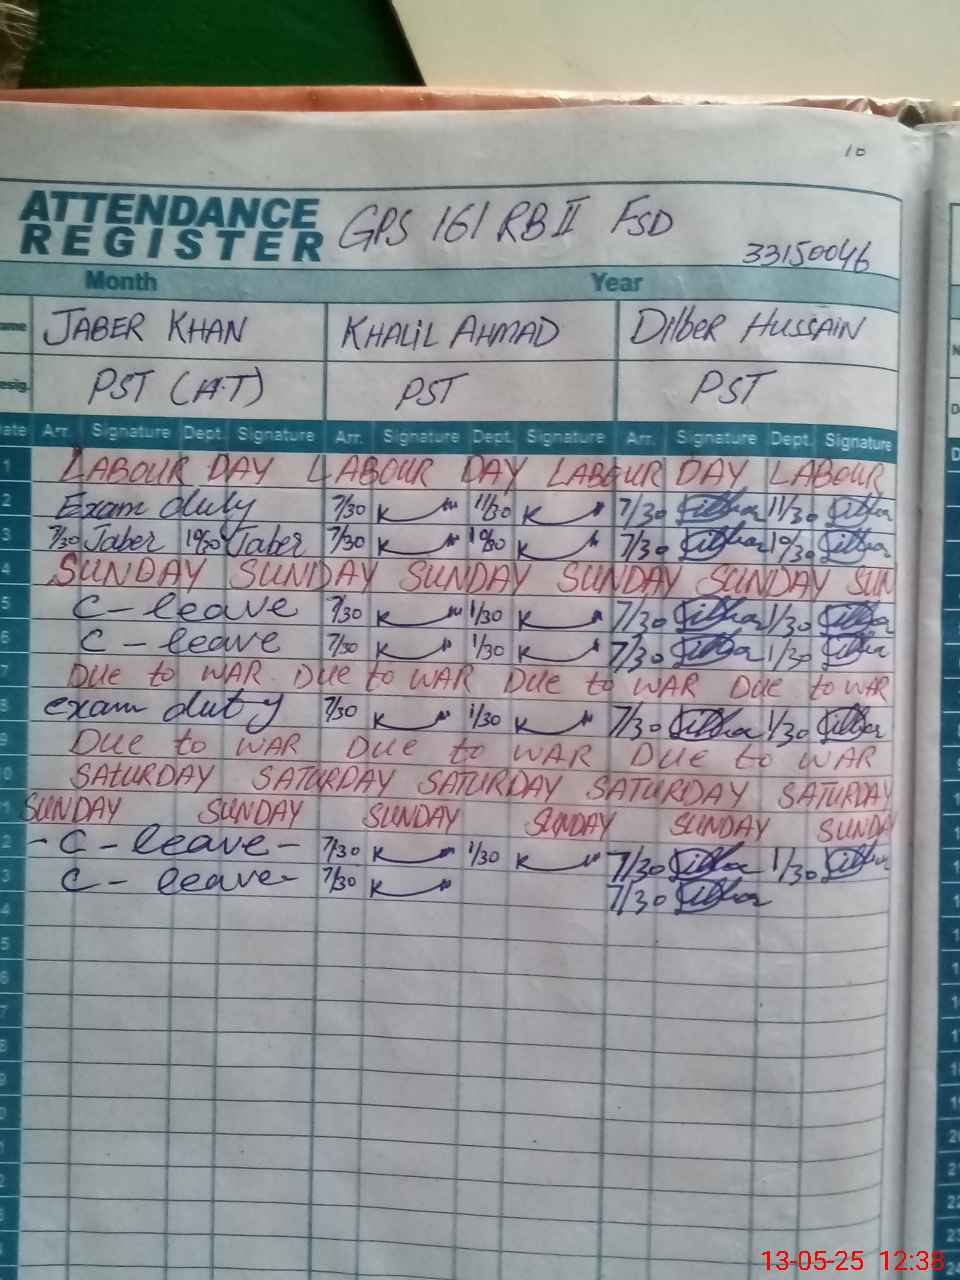 10
ATTENDANCE REGISTER GPS 161 RB II FSD
33150046
Month Year
ame JABER KHAN KHALIL AHMAD DilbER HUSSAIN
esig. PST (A.T) PST PST
ate Arr. Signature Dept. Signature Arr. Signature Dept. Signature Arr. Signature Dept. Signature
1 LABOUR DAY LABOUR DAY LABOUR DAY LABOUR
2 Exam duty 7/30 K 11/30 K 7/30 11/30
3 7/30 Jaber 10/30 Jaber 7/30 K 10/30 K 7/30 10/30
4 SUNDAY SUNDAY SUNDAY SUNDAY SUNDAY SUN
5 C- leave 7/30 K 1/30 K 7/30 1/30
6 C - leave 7/30 K 1/30 K 7/30 1/30
7 DUE to WAR DUE to WAR DUE to WAR DUE to WAR
8 exam duty 7/30 K 1/30 K 7/30 1/30
9 DUE to WAR DUE to WAR DUE to WAR
0 SATURDAY SATURDAY SATURDAY SATURDAY SATURDAY
1 SUNDAY SUNDAY SUNDAY SUNDAY SUNDAY SUNDAY
2 - C - leave - 7/30 K 1/30 K 7/30 1/30
3 C - leave- 7/30 K 7/30
4
5
6
7
8
9
0
1
2
3
4
13-05-25 12:38